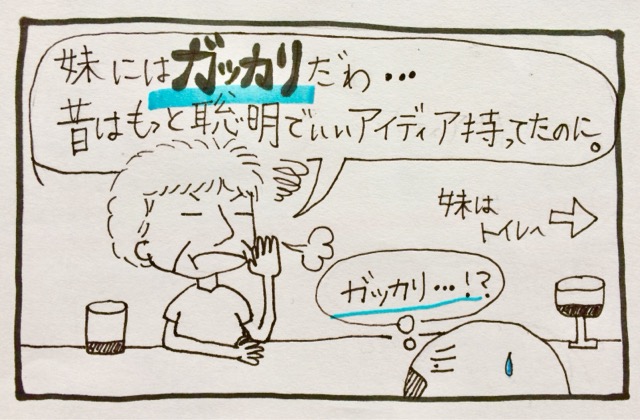 妹にはガッカリだわ…
昔はもっと聡明でいいアイディア持ってたのに。
妹は
トイレへ
ガッカリ…!?